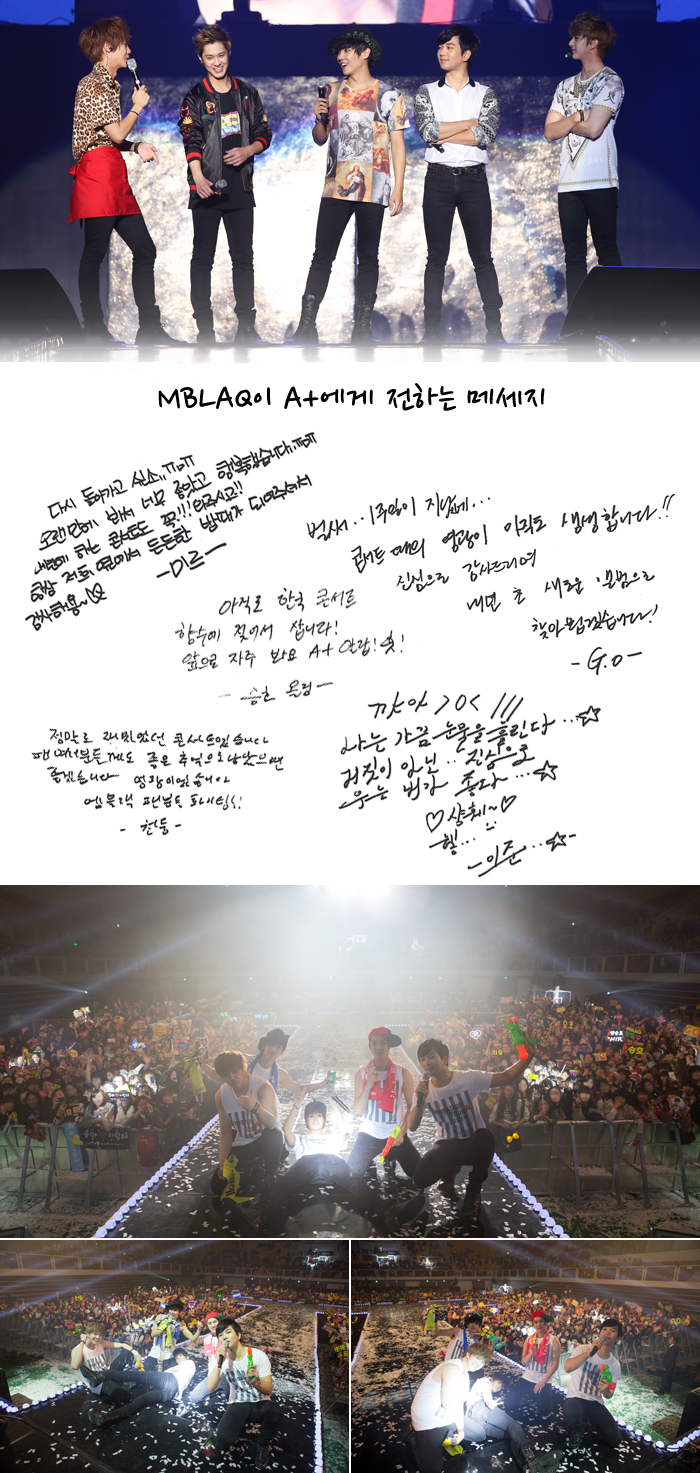 MBLAQ이 A+에게 전하는 메세지
다시 돌아가고 싶소..ㅠㅁㅠ
오랜만에 봐서 너무 좋았고 행복했습니다..ㅠㅁㅠ
내년에 하는 콘서트도 꼭!!! 와주시고!!
항상 저희 옆에서 든든한 버팀목이 되어주셔서
감사해용~♡
-미르-
벌써.. 1주일이 지났네...
콘서트 때의 영광이 아직도 생생합니다!!
진심으로 감사드리며
내년 초 새로운 앨범으로
찾아뵙겠습니다!
- G.O -
아직도 한국 콘서트
함수에 젖어서 삽니다!
앞으로 자주 봐요 A+ 안람!
- 승호
정말로 재밌었던 콘서트였습니다
팬여러분들께도 좋은 추억으로 남았으면
좋겠습니다 영광이었습니다
엠블랙 팬분도 화이팅!
- 천둥 -
꺄아 >0< !!!
나는 가끔 눈물을 흘린다 ...☆
거짓이 아닌.. 진심으로
우는 내가 좋다... ☆
♡ 샹체~♡
헿...
-이준...☆-
MIR
승호